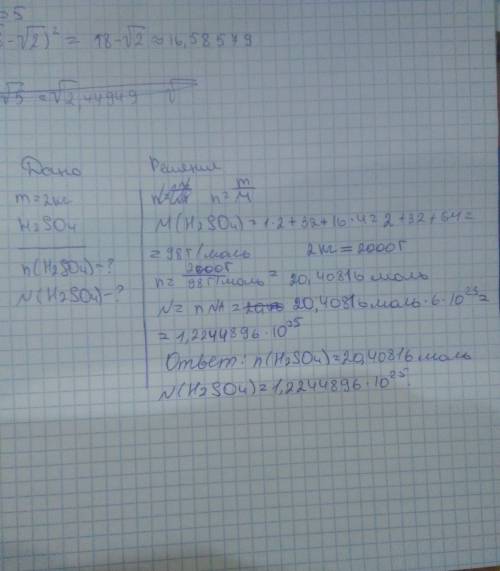 5
-√2)² = 18-√2 ≈ 16,58579
√5 = √2,44949 √
Дано
m=2кг
H2SO4
n(H2SO4)-?
N(H2SO4)-?
Решение
n=m/M
M(H2SO4)=1·2+32+16·4=2+32+64=
=98г/моль 2кг=2000г
n=2000г/98г/моль=20,40816 моль
N= nNA= 20,40816 моль·6·10²³=
=1,2244896·10²⁵
Ответ: n(H2SO4)=20,40816 моль
N(H2SO4)=1,2244896·10²⁵.